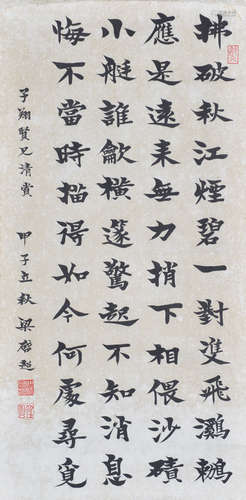 拂破秋江煙碧一對雙飛鸂鶒
應是遠來無力捎下相偎沙磧
小艇誰龡橫篴驚起不知消息
悔不當時描得如今何處尋覓
子翔賢兄清賞
甲子立秋 梁啟超